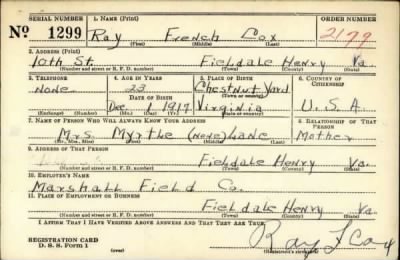 SERIAL NUMBER 1. NAME (Print) ORDER NUMBER
No 1299 Ray French Cox 2179
(First) (Middle) (Last)
2. ADDRESS (Print)
10th St. Fieldale Henry Va.
(Number and street or R. F. D. number) (Town) (County) (State)
3. TELEPHONE 4. AGE IN YEARS 5. PLACE OF BIRTH 6. COUNTRY OF CITIZENSHIP
None 23 Chestnut Yard
DATE OF BIRTH (Town or county)
Dec. 1 1917 Virginia U.S.A.
(Exchange) (Number) (Mo.) (Day) (Yr.) (State or country)
7. NAME OF PERSON WHO WILL ALWAYS KNOW YOUR ADDRESS 8. RELATIONSHIP OF THAT PERSON
Mrs. Myrtle (none) Lane Mother
(Mr., Mrs., Miss) (First) (Middle) (Last)
9. ADDRESS OF THAT PERSON
Fieldale Henry Va.
(Number and street or R. F. D. number) (Town) (County) (State)
10. EMPLOYER'S NAME
Marshall Field Co.
11. PLACE OF EMPLOYMENT OR BUSINESS
Fieldale Henry Va.
(Number and street or R. F. D. number) (Town) (County) (State)
I AFFIRM THAT I HAVE VERIFIED ABOVE ANSWERS AND THAT THEY ARE TRUE.
REGISTRATION CARD
D. S. S. Form 1 Ray F Cox
(Registrant's signature)